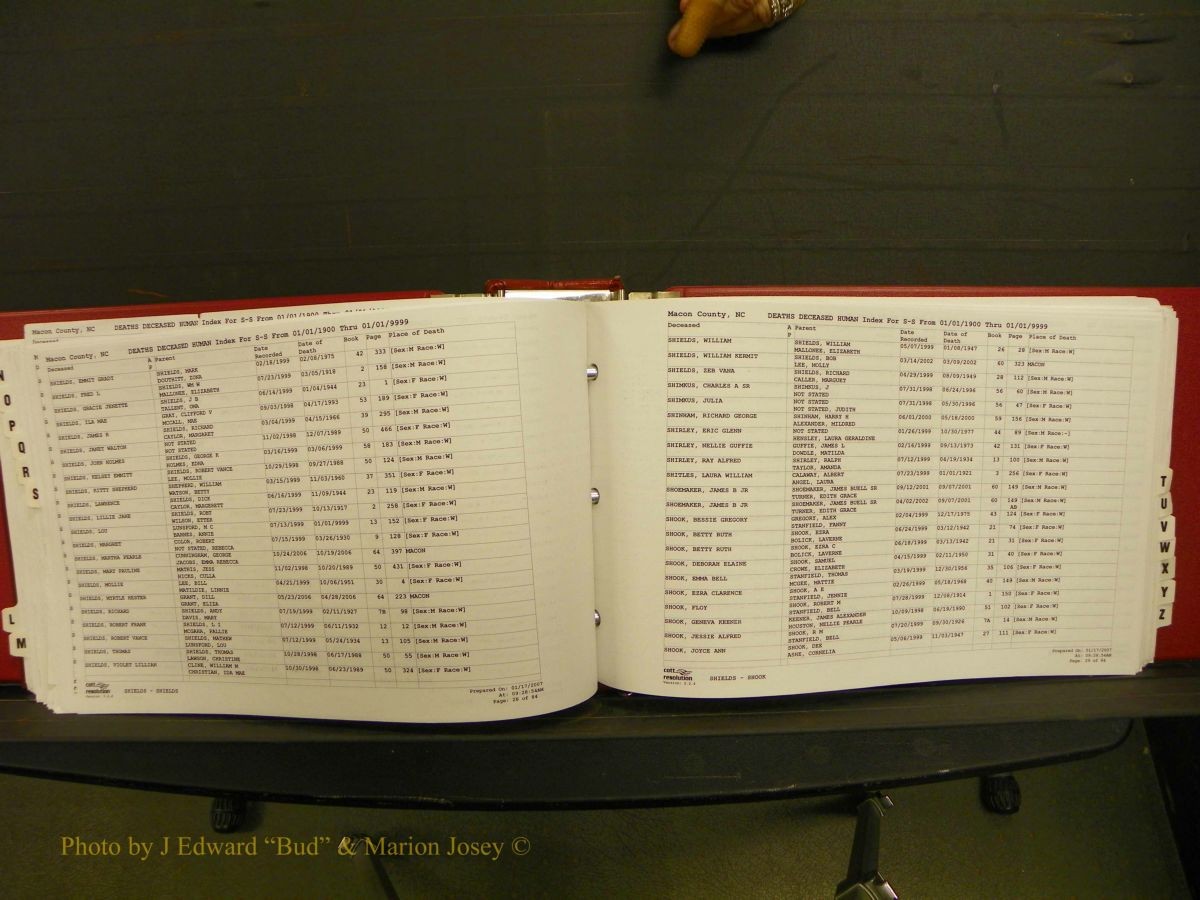 Macon County, NC DEATHS DECEASED HUMAN Index For S-S From 01/01/1900 Thru 01/01/9999
Macon County, NC DEATHS DECEASED HUMAN Index For S-S From 01/01/1900 Thru 01/01/9999
Deceased A Parent Date Recorded Date of Death Book Page Place of Death
P
SHIELDS, EMMIT GRADY SHIELDS, MARK 02/18/1999 02/08/1975 42 333 [Sex:M Race:W]
DOUTHITT, EDNA
SHIELDS, FRED L SHIELDS, WM W 07/23/1999 03/05/1918 2 158 [Sex:M Race:W]
MALLONEE, ELIZABETH
SHIELDS, GRACIE JENETTE SHIELDS, J B 06/14/1999 01/04/1944 23 1 [Sex:F Race:W]
TALLENT, ONA
SHIELDS, ILA MAE GRAY, CLIFFORD V 09/03/1998 04/17/1993 53 189 [Sex:F Race:W]
MCCALL, MAE
SHIELDS, JAMES R SHIELDS, RICHARD 03/04/1999 04/15/1966 39 295 [Sex:M Race:W]
CAYLOR, MARGARET
SHIELDS, JANET WALTON NOT STATED 11/02/1998 12/07/1989 50 466 [Sex:F Race:W]
NOT STATED
SHIELDS, JOHN HOLMES SHIELDS, GEORGE R 03/16/1999 03/06/1999 58 183 [Sex:M Race:W]
HOLMES, EDNA
SHIELDS, KELSEY EMMITT SHIELDS, ROBERT VANCE 10/29/1998 09/27/1988 50 124 [Sex:M Race:W]
LEE, MOLLIE
SHIELDS, KITTY SHEPHERD SHEPHERD, WILLIAM 03/15/1999 11/03/1960 37 351 [Sex:F Race:W]
WATSON, BETTY
SHIELDS, LAWRENCE SHIELDS, DICK 06/16/1999 11/09/1944 23 119 [Sex:M Race:W]
CAYLOR, MARGERETT
SHIELDS, LILLIE JANE SHIELDS, ROBT 07/23/1999 10/13/1917 2 258 [Sex:F Race:W]
WILSON, ETTER
SHIELDS, LOU LUNSFORD, M C 07/13/1999 01/01/9999 13 152 [Sex:F Race:W]
BANNES, ANNIE
SHIELDS, MARGRET COLON, ROBERT 07/15/1999 03/26/1930 9 128 [Sex:F Race:W]
NOT STATED, REBECCA
SHIELDS, MARTHA PEARLE CUNNINGHAM, GEORGE 10/24/2006 10/19/2006 64 397 MACON
JACOBS, EMMA REBECCA
SHIELDS, MARY PAULINE MATHIS, JESS 11/02/1998 10/20/1989 50 431 [Sex:F Race:W]
HICKS, CULLA
SHIELDS, MOLLIE LEE, BILL 04/21/1999 10/06/1951 30 4 [Sex:F Race:W]
MATILDIE, LINNIE
SHIELDS, MYRTLE HESTER GRANT, DILL 05/23/2006 04/28/2006 64 223 MACON
GRANT, ELIZA
SHIELDS, RICHARD SHIELDS, ANDY 07/19/1999 02/11/1927 7B 98 [Sex:M Race:W]
DAVIS, MARY
SHIELDS, ROBERT FRANK SHIELDS, L I 07/12/1999 06/11/1932 12 12 [Sex:M Race:W]
MCGAHA, RALLIE
SHIELDS, ROBERT VANCE SHIELDS, MATHEW 07/12/1999 05/24/1934 13 105 [Sex:M Race:W]
LUNSFORD, LOU
SHIELDS, THOMAS SHIELDS, THOMAS 10/28/1998 06/17/1988 50 55 [Sex:M Race:W]
LAWSON, CHRISTINE
SHIELDS, VIOLET LILLIAN CLINE, WILLIAM N 10/30/1998 06/23/1989 50 324 [Sex:F Race:W]
CHRISTIAN, IDA MAE
cott resolution SHIELDS - SHIELDS
Prepared On: 01/17/2007
At: 09:28:54AM
Page: 28 of 84
N
O
P
Q
R
S
L
M
Macon County, NC DEATHS DECEASED HUMAN Index For S-S From 01/01/1900 Thru 01/01/9999
Deceased A Parent Date Recorded Date of Death Book Page Place of Death
P
SHIELDS, WILLIAM SHIELDS, WILLIAM 05/07/1999 01/08/1947 26 28 [Sex:M Race:W]
MALLONEE, ELIZABETH
SHIELDS, WILLIAM KERMIT SHIELDS, BOB 03/14/2002 03/09/2002 60 323 MACON
LEE, MOLLY
SHIELDS, ZEB VANA SHIELDS, RICHARD 04/29/1999 08/09/1949 28 112 [Sex:M Race:W]
CALLER, MARGUET
SHIMKUS, CHARLES A SR SHIMKUS, J 07/31/1998 06/24/1996 56 60 [Sex:M Race:W]
NOT STATED
SHIMKUS, JULIA NOT STATED 07/31/1998 05/30/1996 56 47 [Sex:F Race:W]
NOT STATED, JUDITH
SHINHAM, RICHARD GEORGE SHINHAM, HARRY H 06/01/2000 05/18/2000 59 156 [Sex:M Race:W]
ALEXANDER, MILDRED
SHIRLEY, ERIC GLENN NOT STATED 01/26/1999 10/30/1977 44 89 [Sex:M Race:-]
HENSLEY, LAURA GERALDINE
SHIRLEY, NELLIE GUFFIE GUFFIE, JAMES L 02/16/1999 09/13/1973 42 131 [Sex:F Race:W]
DOWDLE, MATILDA
SHIRLEY, RAY ALFRED SHIRLEY, RALPH 07/12/1999 04/19/1934 13 100 [Sex:M Race:W]
TAYLOR, AMANDA
SHITLES, LAURA WILLIAM CALAWAY, ALBERT 07/23/1999 01/01/1921 3 256 [Sex:F Race:W]
ANGEL, LAURA
SHOEMAKER, JAMES B JR SHOEMAKER, JAMES BUELL SR 09/12/2001 09/07/2001 60 149 [Sex:M Race:W]
TURNER, EDITH GRACE
SHOEMAKER, JAMES B JR SHOEMAKER, JAMES BUELL SR 04/02/2002 09/07/2001 60 149 [Sex:M Race:W]
TURNER, EDITH GRACE AB
SHOOK, BESSIE GREGORY GREGORY, ALEX 02/04/1999 12/17/1975 43 124 [Sex:F Race:W]
STANFIELD, FANNY
SHOOK, BETTY RUTH SHOOK, EZRA 06/24/1999 03/12/1942 21 74 [Sex:F Race:W]
BOLICK, LAVERNE
SHOOK, BETTY RUTH SHOOK, EZRA C 06/18/1999 03/13/1942 21 31 [Sex:F Race:W]
BOLICK, LAVERNE
SHOOK, DEBORAH ELAINE SHOOK, SAMUEL 04/15/1999 02/11/1950 31 40 [Sex:F Race:W]
CROWE, ELIZABETH
SHOOK, EMMA BELL STANFIELD, THOMAS 03/19/1999 12/30/1956 35 106 [Sex:F Race:W]
MCGEE, MATTIE
SHOOK, EZRA CLARENCE SHOOK, A E 02/26/1999 05/18/1968 40 149 [Sex:M Race:W]
STANFIELD, JENNIE
SHOOK, FLOY SHOOK, ROBERT M 07/28/1999 12/08/1914 1 150 [Sex:F Race:W]
STANFIELD, BELL
SHOOK, GENEVA KEENER KEENER, JAMES ALEXANDER 10/09/1998 06/19/1990 51 102 [Sex:F Race:W]
HOUSTON, NELLIE PEARLE
SHOOK, JESSIE ALFRED SHOOK, R M 07/20/1999 09/30/1926 7A 14 [Sex:M Race:W]
STANFIELD, BELL
SHOOK, JOYCE ANN SHOOK, DEK 05/06/1999 11/03/1947 27 111 [Sex:F Race:W]
ASHE, CORNELIA
cott resolution SHIELDS - SHOOK
Prepared On: 01/17/2007
At: 09:28:54AM
Page: 29 of 84
T
U
V
W
X
Y
Z
Photo by J Edward “Bud” & Marion Josey ©